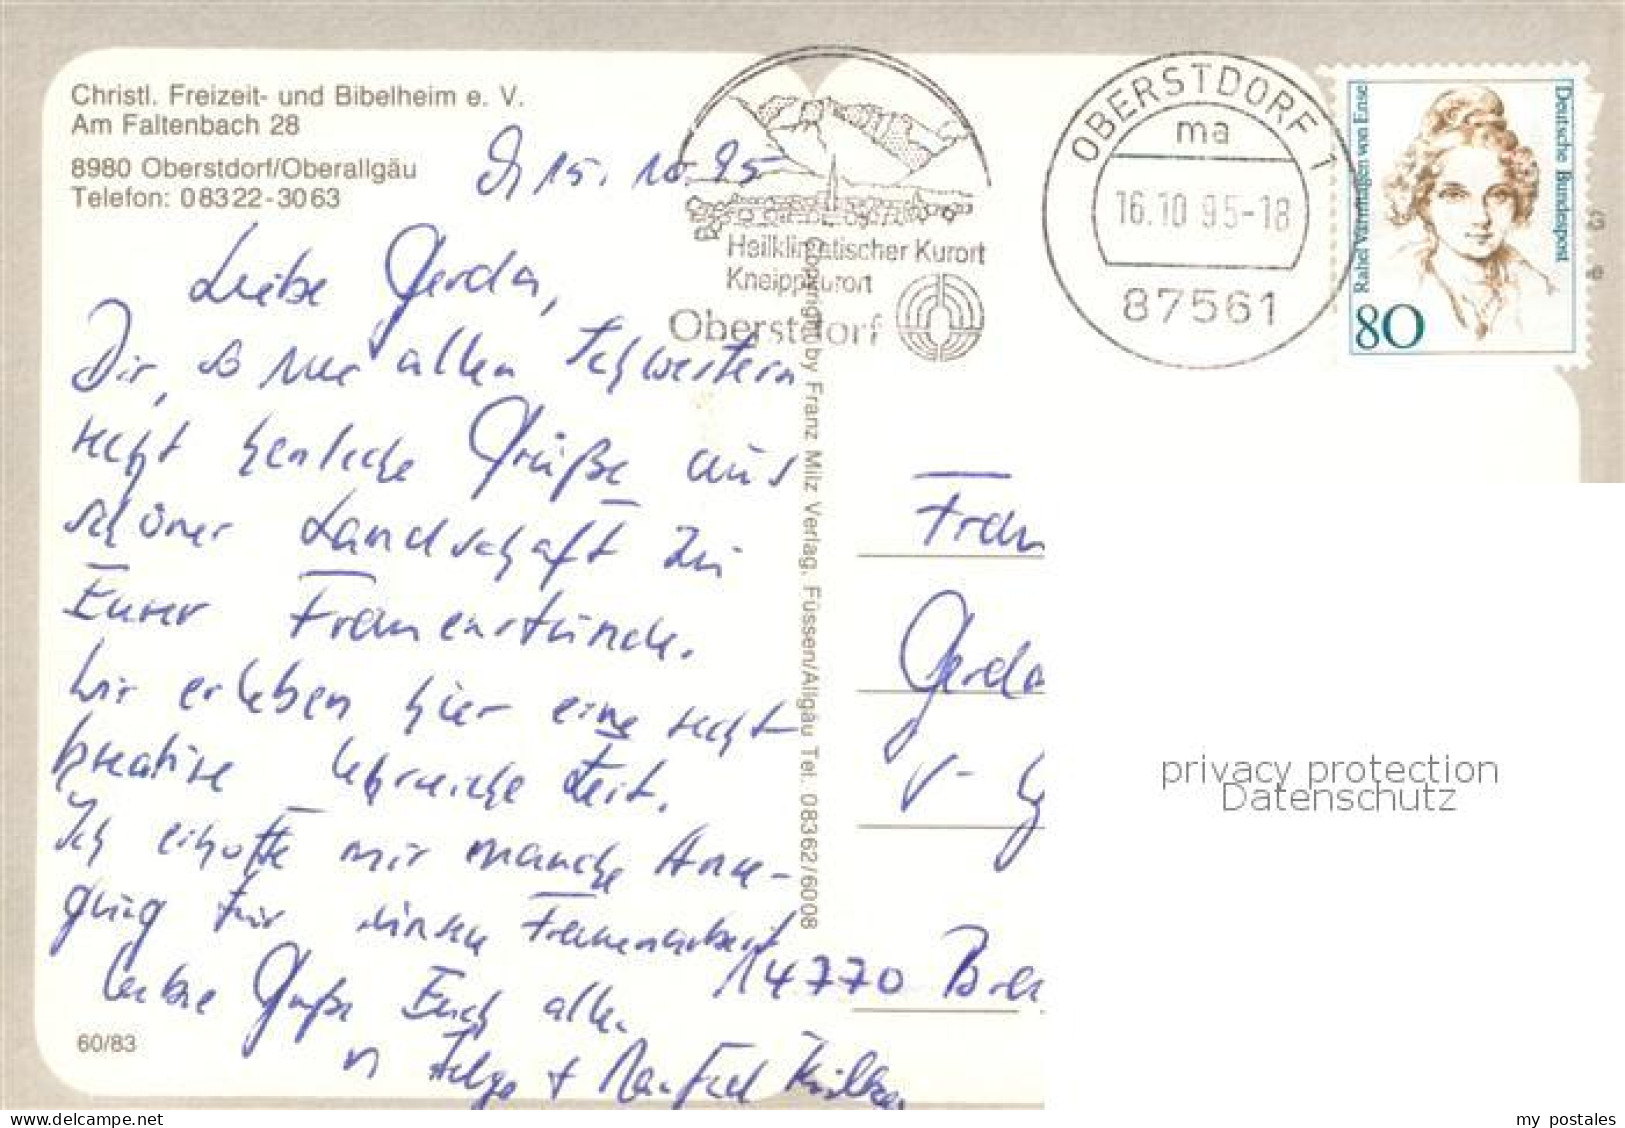 Christl. Freizeit- und Bibelheim e. V.
Am Faltenbach 28
8980 Oberstdorf/Oberallgäu
Telefon: 08322-3063
15. 10. 95
Liebe Gerda,
Dir, allen Schwestern
recht herzliche Grüße aus
schöner Landschaft zu
Eurer Frauenstunde.
Wir erleben hier eine recht
kreative lehrreiche Zeit.
Ich erhoffe mir manche Anre-
gung für unsere Frauenarbeit
Liebe Grüße Euch allen
Helga + Manfred
60/83
Heilklimatischer Kurort
Kneippkurort
Oberstdorf
OBERSTDORF 1
ma
16.10.95-18
87561
Rahel Varnhagen von Ense
Deutsche Bundespost
80
Copyright by Franz Milz Verlag, Füssen/Allgäu Tel. 08362/6008
Frau
Gerda
14770 Bra
privacy protection
Datenschutz
my postales